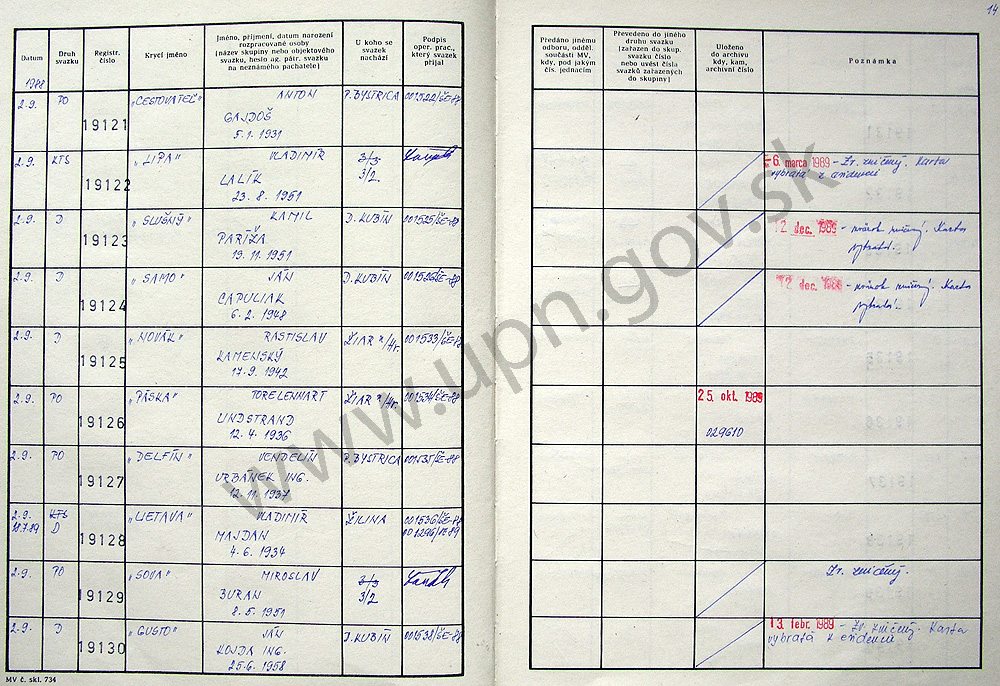 14
Datum
Druh svazku
Registr. číslo
Krycí jméno
Jméno, příjmení, datum narození rozpracované osoby (název skupiny nebo objektového svazku, heslo ag. pátr. svazku na neznámého pachatele)
U koho se svazek nachází
Podpis oper. prac., který svazek přijal
Předáno jinému odboru, odděl. součásti MV, kdy, pod jakým čís. jednacím
Převedeno do jiného druhu svazku (zařazen do skup. svazku číslo nebo uvést čísla svazků zařazených do skupiny)
Uloženo do archivu kdy, kam, archivní číslo
Poznámka
1988
2.9. PO 19121 „CESTOVATEĽ" ANTON P. BYSTRICA 001522/ŠE-88
GAJDOŠ
5.1. 1931
2.9. KTS 19122 „LIPA" VLADIMÍR 3/3
LALÍK 3/2
23.8. 1951
-6. marca 1989 - Zv. zničený. Karta
vybratá z evidencii
2.9. D 19123 „SLUŠNÝ" KAMIL D. KUBÍN 001525/ŠE-88
PARÍŽA
19.11 1951
12. dec. 1989 - zničený. Karta
vybratá.
2.9. D 19124 „SAMO" JÁN D. KUBÍN 001526/ŠE-88
CAPULIAK
6.2. 1948
12. dec. 1989 - zničený. Karta
vybratá.
2.9. D 19125 „NOVÁK" RASTISLAV ŽIAR n/Hr. 001533/ŠE-88
KAMENSKÝ
17.9. 1942
2.9. PO 19126 „PÁSKA" TORELENNART ŽIAR n/Hr. 001534/ŠE-88
LINDSTRAND
12.4. 1936
25. okt. 1989
029610
2.9. PO 19127 „DELFÍN" VENDELÍN P. BYSTRICA 001535/ŠE-88
URBÁNEK ING.
12.11. 1937
2.9. KTS 19128 „LIETAVA" VLADIMÍR ŽILINA 001536/ŠE-88
18.7.89 D MAJDAN 001296/ŠE-89
4.6. 1934
2.9. PO 19129 „SOVA" MIROSLAV 3/3
BURAN 3/2
8.5. 1951
Zv. zničený.
2.9. D 19130 „GUSTO" JÁN D. KUBÍN 001538/ŠE-88
KOJDA ING.
25.6. 1958
13. febr. 1989 - Zv. zničený. Karta
vybratá z evidencii
MV č. skl. 734
www.upn.gov.sk